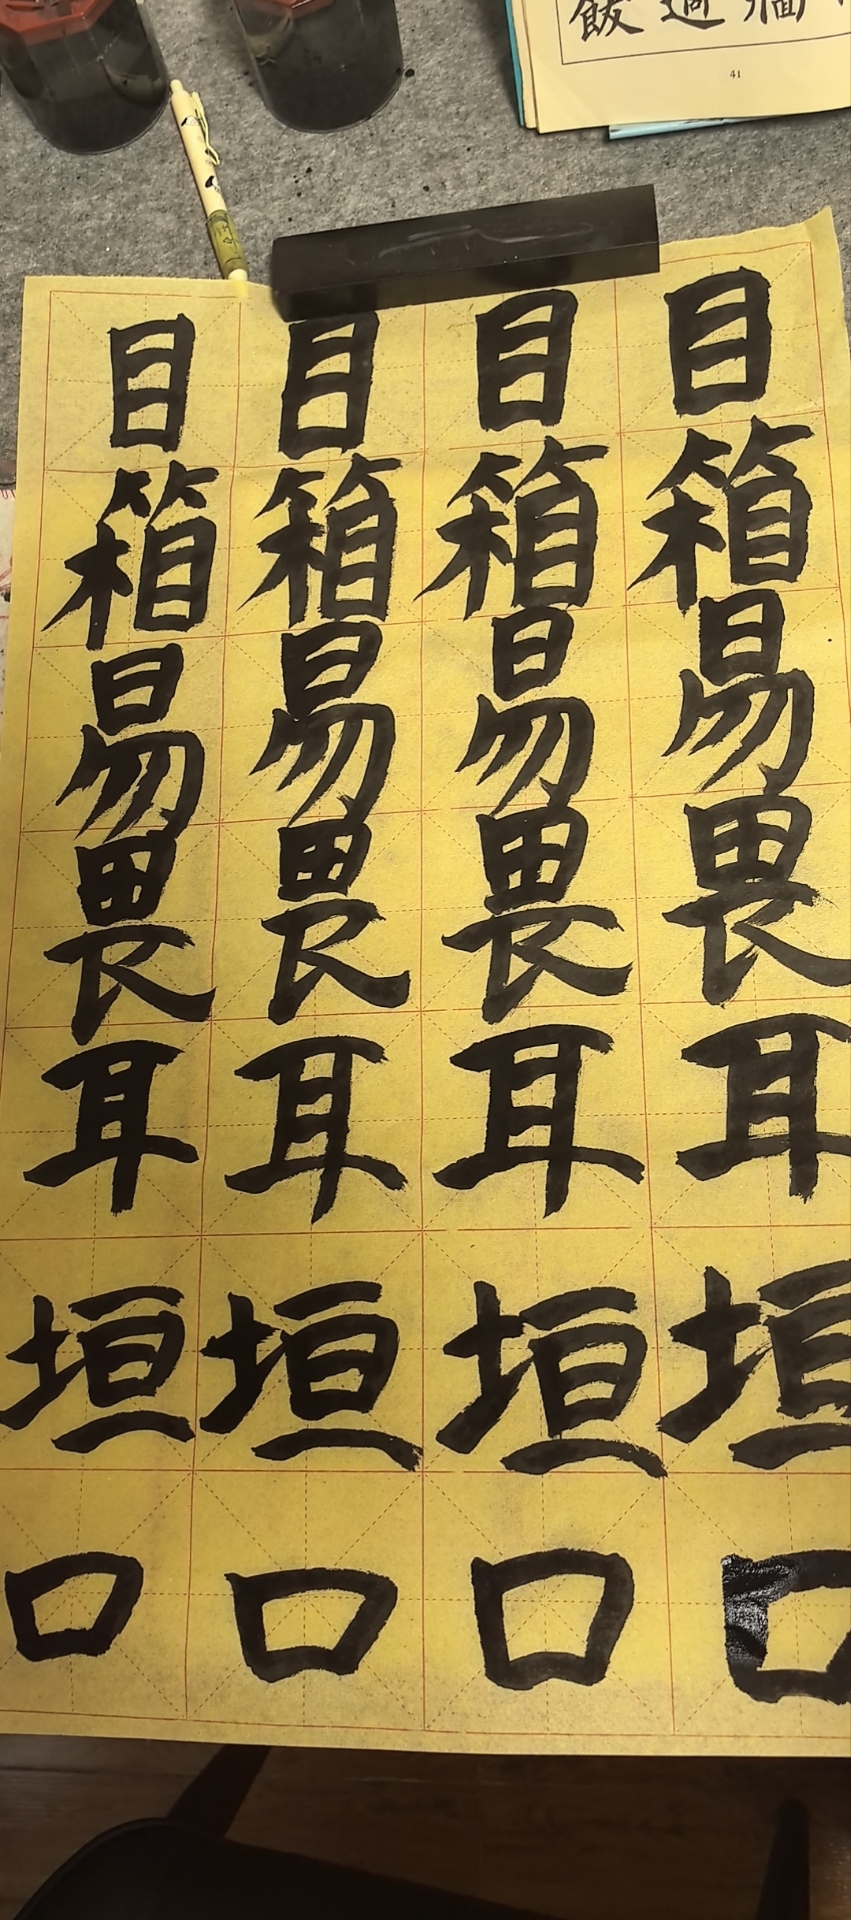 飯過牆
41
目目目目
箱箱箱箱
易易易易
畏畏畏畏
耳耳耳耳
垣垣垣垣
口口口口